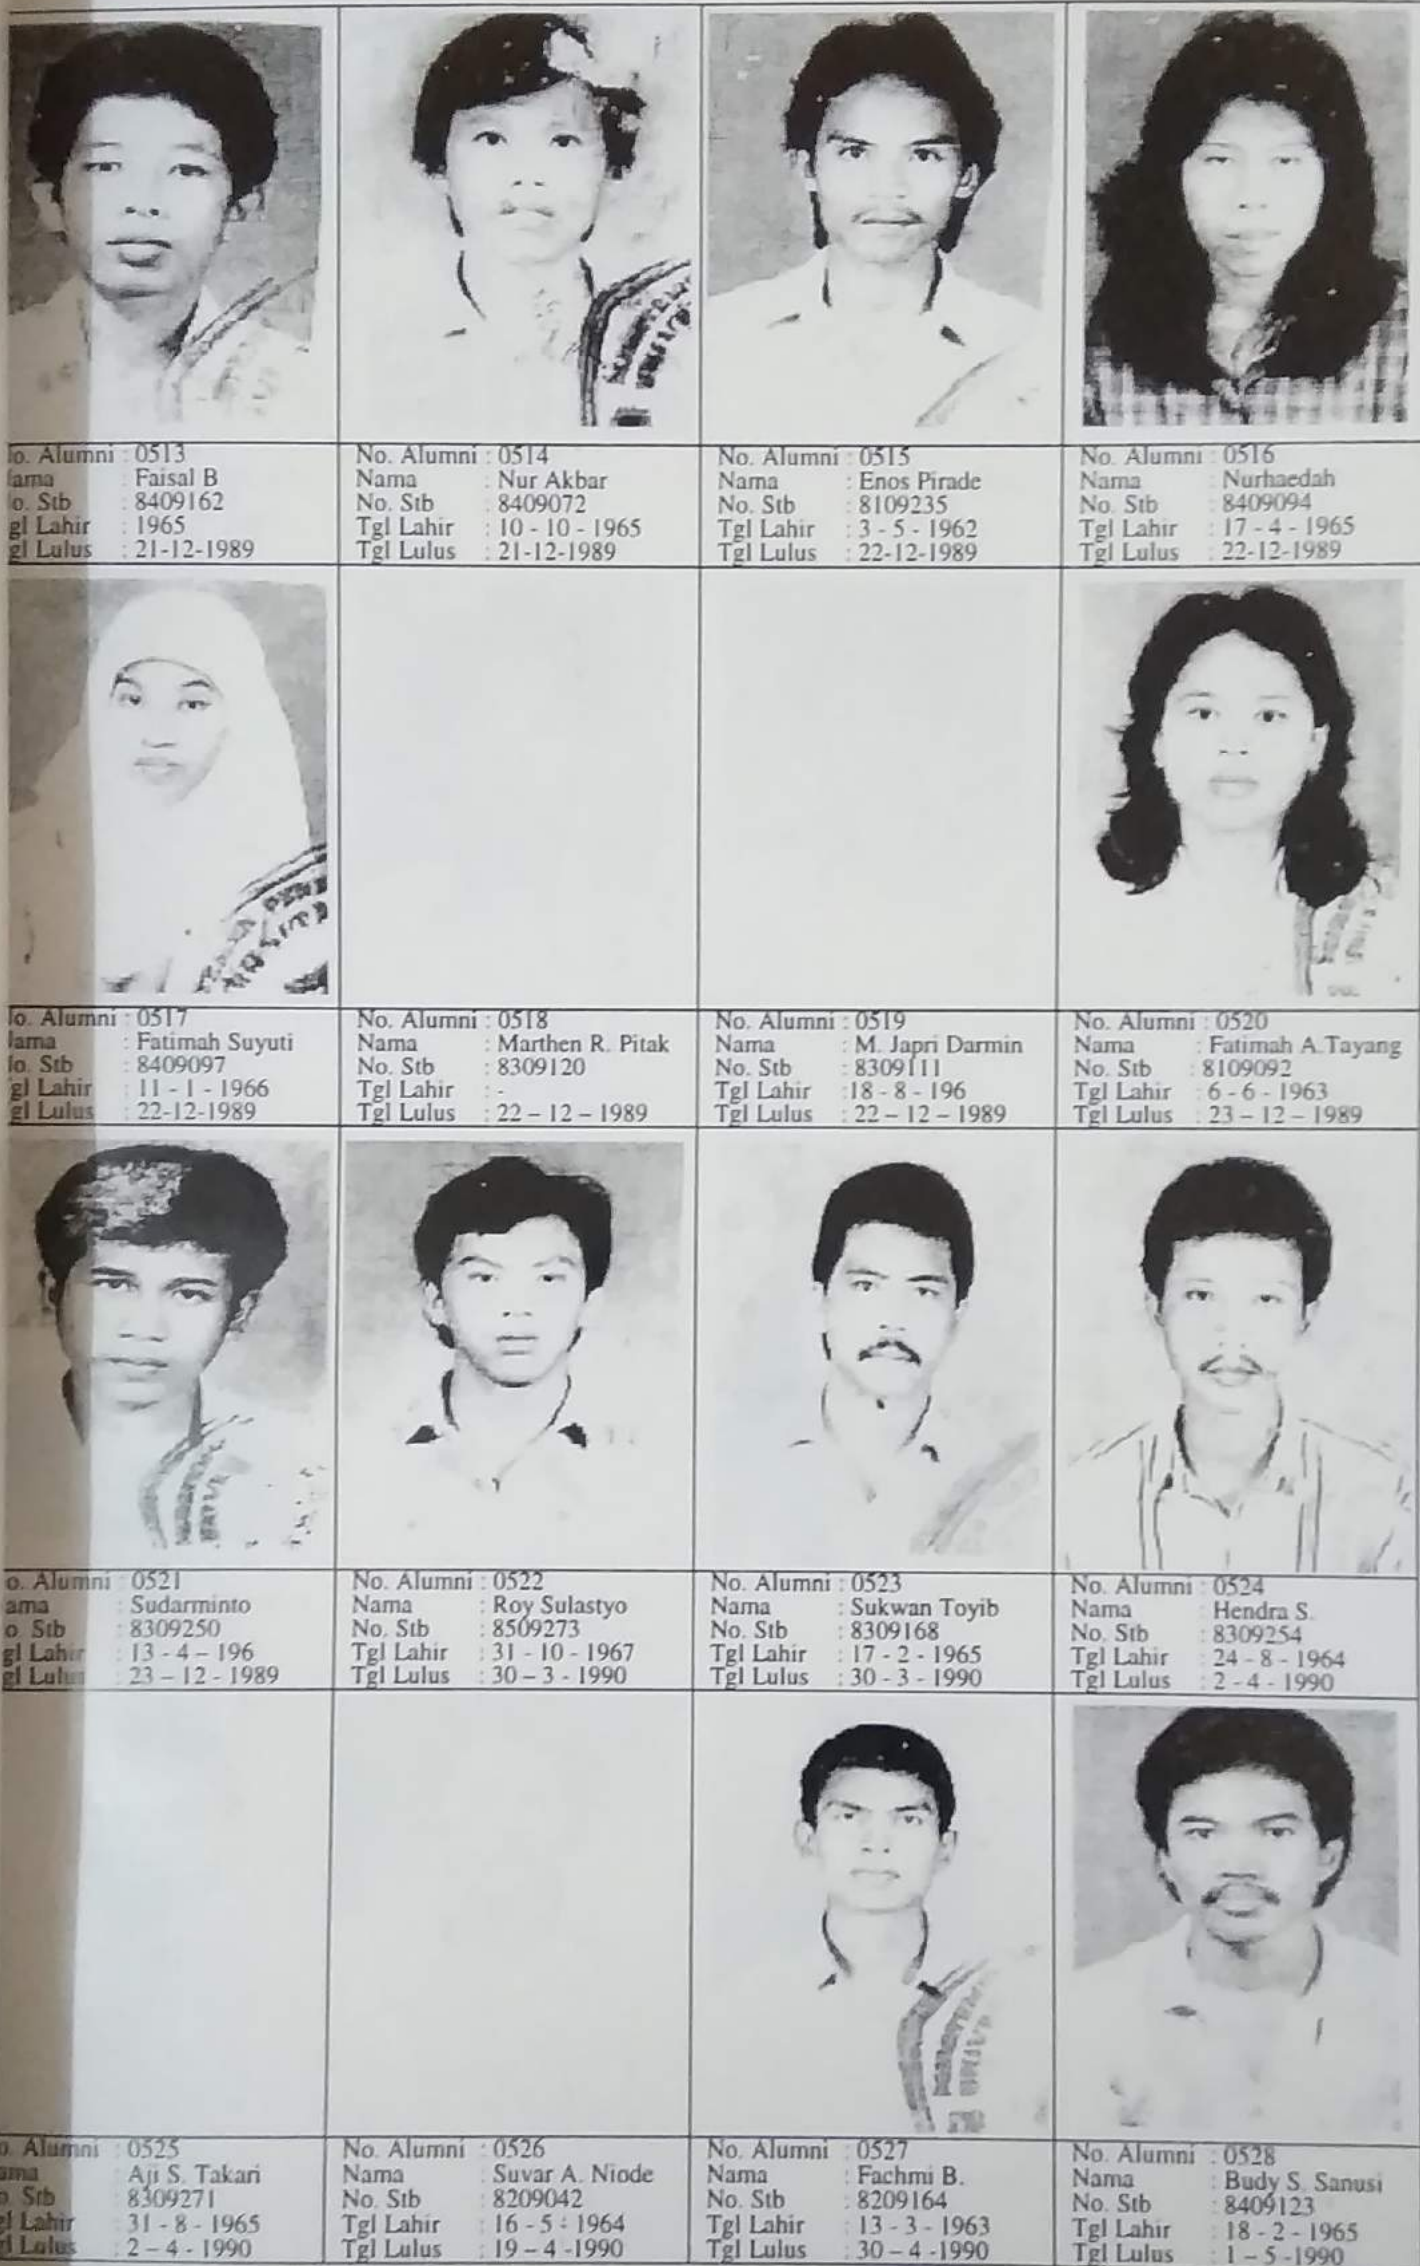 o. Alumni : 0513
ama : Faisal B
o. Stb : 8409162
gl Lahir : 1965
gl Lulus : 21-12-1989
No. Alumni : 0514
Nama : Nur Akbar
No. Stb : 8409072
Tgl Lahir : 10 - 10 - 1965
Tgl Lulus : 21-12-1989
No. Alumni : 0515
Nama : Enos Pirade
No. Stb : 8109235
Tgl Lahir : 3 - 5 - 1962
Tgl Lulus : 22-12-1989
No. Alumni : 0516
Nama : Nurhaedah
No. Stb : 8409094
Tgl Lahir : 17 - 4 - 1965
Tgl Lulus : 22-12-1989
o. Alumni : 0517
ama : Fatimah Suyuti
o. Stb : 8409097
gl Lahir : 11 - 1 - 1966
gl Lulus : 22-12-1989
No. Alumni : 0518
Nama : Marthen R. Pitak
No. Stb : 8309120
Tgl Lahir : -
Tgl Lulus : 22 – 12 – 1989
No. Alumni : 0519
Nama : M. Japri Darmin
No. Stb : 8309111
Tgl Lahir :18 - 8 - 196
Tgl Lulus : 22 – 12 – 1989
No. Alumni : 0520
Nama : Fatimah A.Tayang
No. Stb : 8109092
Tgl Lahir : 6 - 6 - 1963
Tgl Lulus : 23 – 12 – 1989
o. Alumni : 0521
ama : Sudarminto
o Stb : 8309250
gl Lahir : 13 - 4 – 196
gl Lulus : 23 – 12 - 1989
No. Alumni : 0522
Nama : Roy Sulastyo
No. Stb : 8509273
Tgl Lahir : 31 - 10 - 1967
Tgl Lulus : 30 – 3 - 1990
No. Alumni : 0523
Nama : Sukwan Toyib
No. Stb : 8309168
Tgl Lahir : 17 - 2 - 1965
Tgl Lulus : 30 - 3 - 1990
No. Alumni : 0524
Nama : Hendra S.
No. Stb : 8309254
Tgl Lahir : 24 - 8 - 1964
Tgl Lulus : 2 - 4 - 1990
o. Alumni : 0525
ama : Aji S. Takari
o Stb : 8309271
gl Lahir : 31 - 8 - 1965
gl Lulus : 2 – 4 - 1990
No. Alumni : 0526
Nama : Suvar A. Niode
No. Stb : 8209042
Tgl Lahir : 16 - 5 - 1964
Tgl Lulus : 19 – 4 -1990
No. Alumni : 0527
Nama : Fachmi B.
No. Stb : 8209164
Tgl Lahir : 13 - 3 - 1963
Tgl Lulus : 30 – 4 -1990
No. Alumni : 0528
Nama : Budy S. Sanusi
No. Stb : 8409123
Tgl Lahir : 18 - 2 - 1965
Tgl Lulus : 1 – 5 - 1990